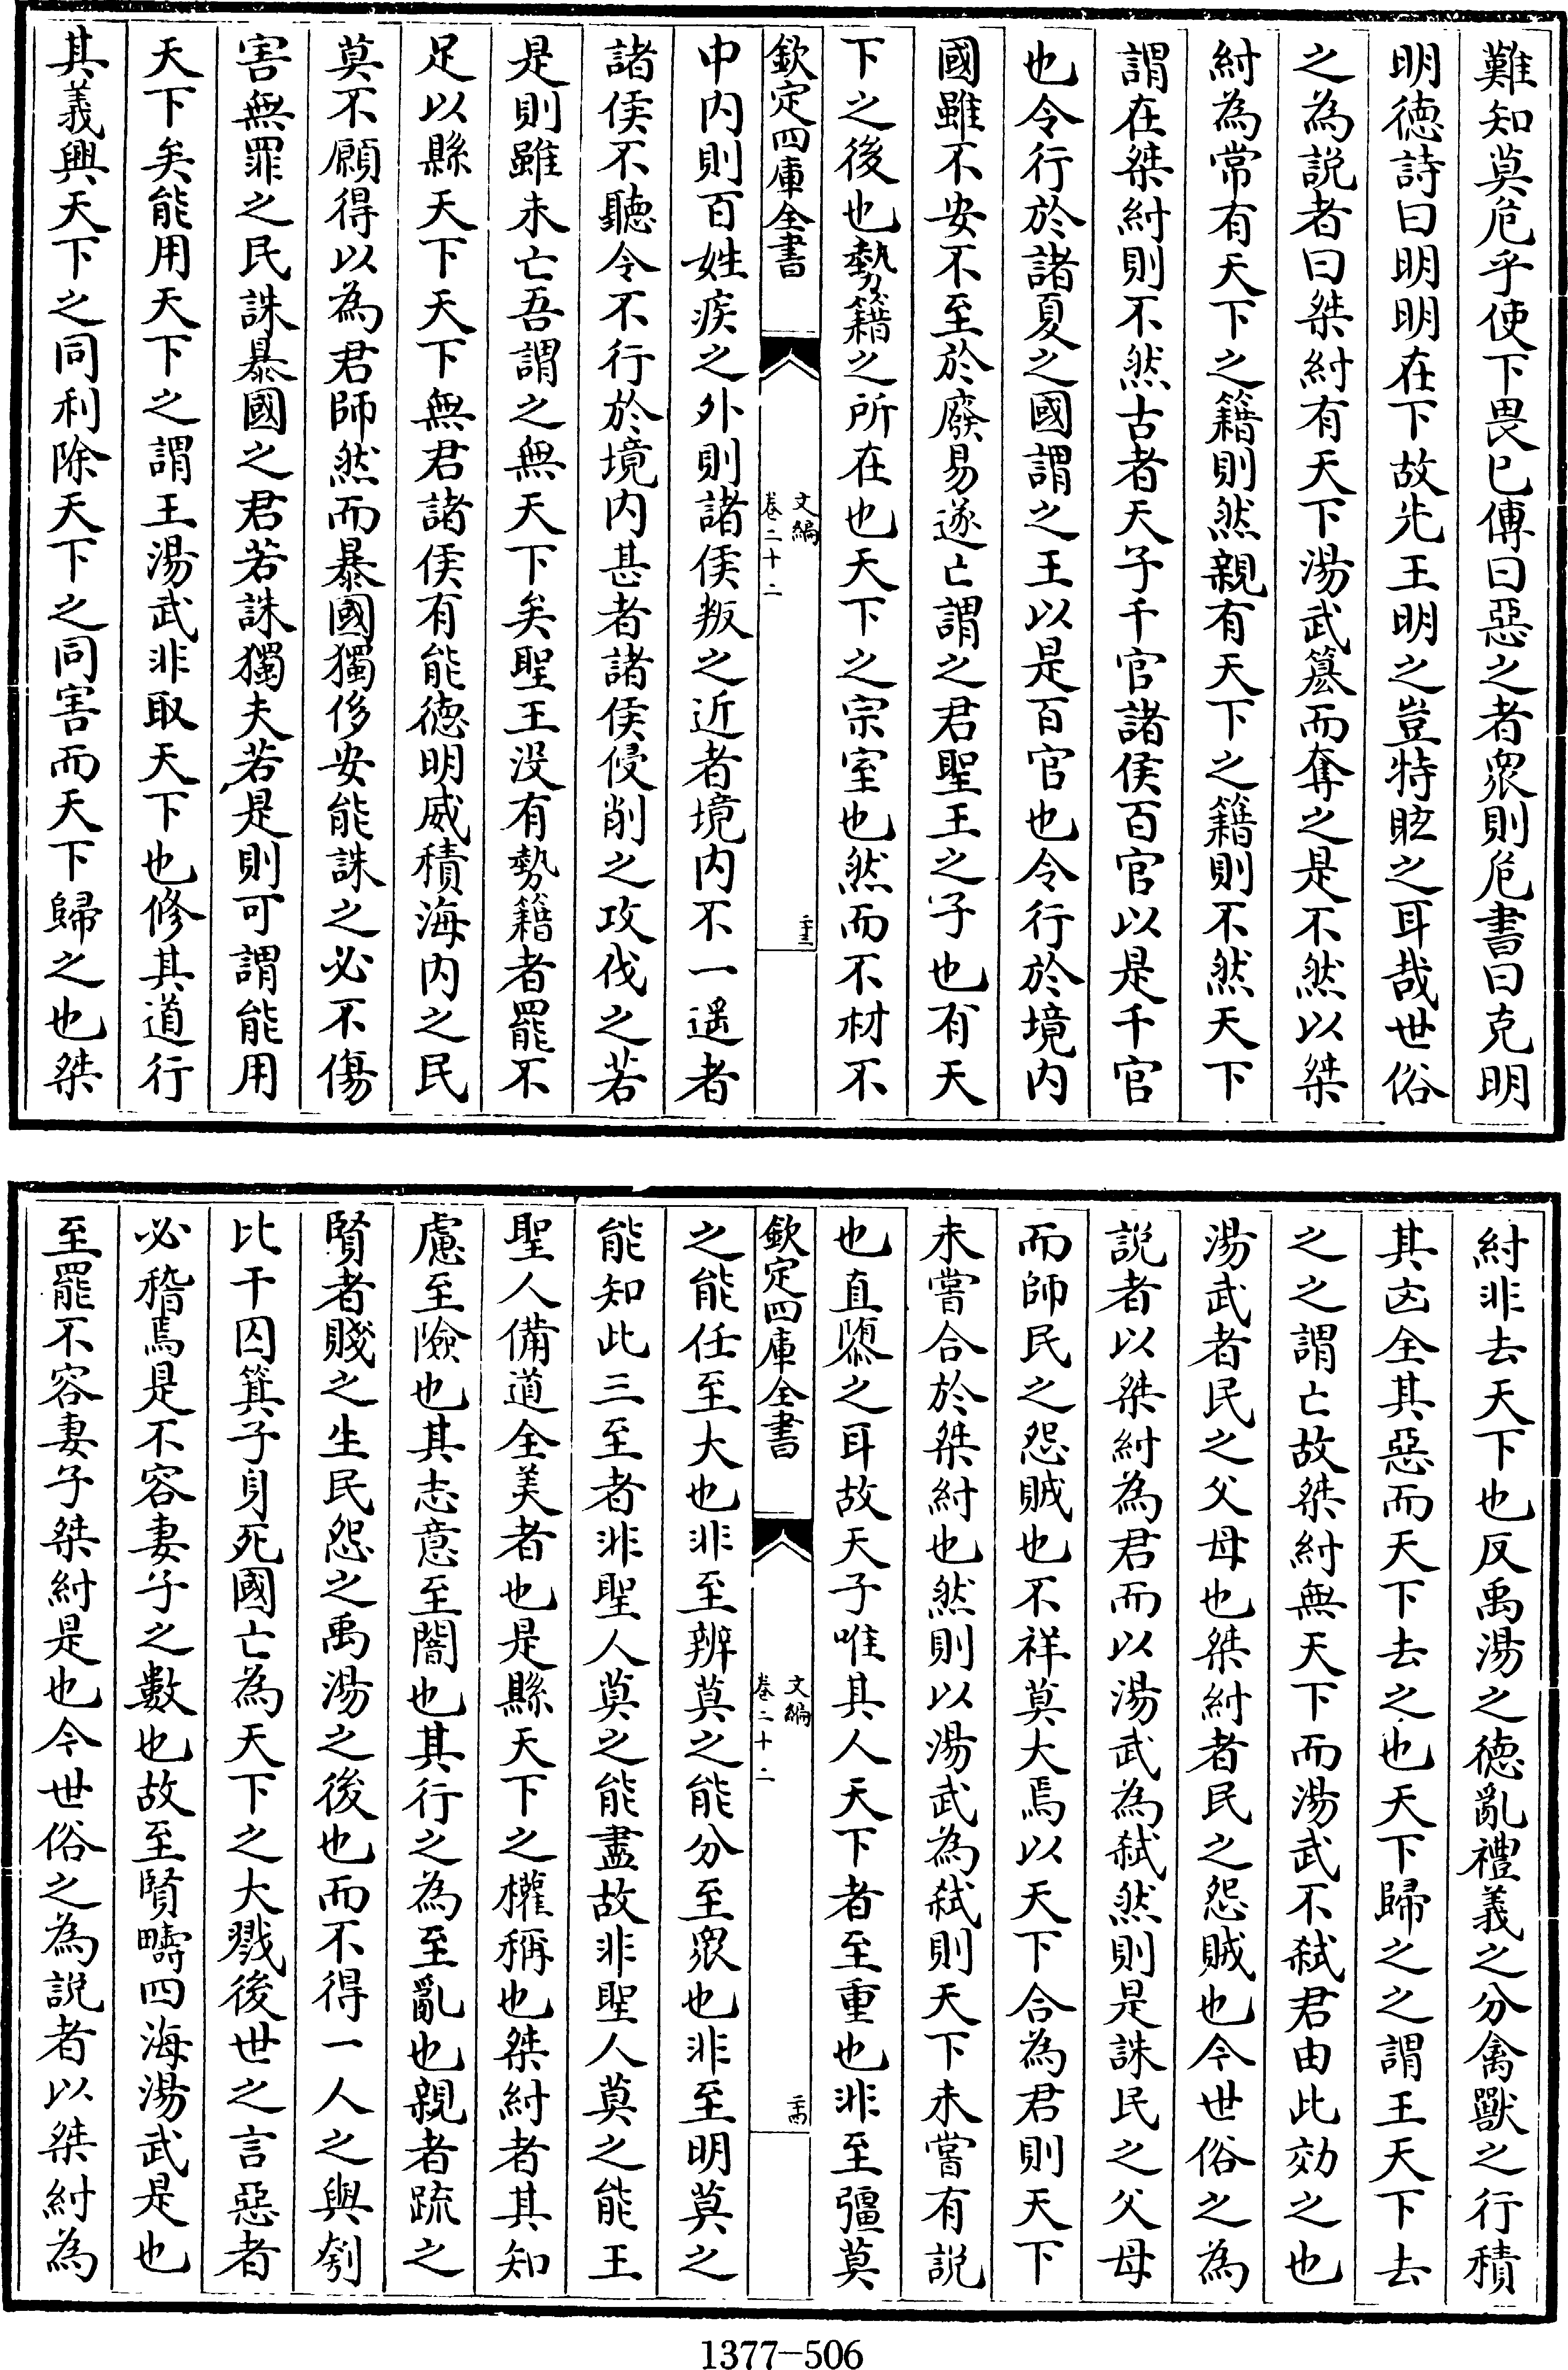 難知莫危乎使下畏已傳曰惡之者衆則危書曰克明
明徳詩曰明明在下故先王明之豈特眩之耳哉世俗
之為説者曰桀紂有天下湯武簒而奪之是不然以桀
紂為常有天下之籍則然親有天下之籍則不然天下
謂在桀紂則不然古者天子千官諸侯百官以是千官
也令行於諸夏之國謂之王以是百官也令行於境内
國雖不安不至於廢易遂亡謂之君聖王之子也有天
下之後也勢籍之所在也天下之宗室也然而不材不
欽定四庫全書
文編
卷二十二
中内則百姓疾之外則諸侯叛之近者境内不一遥者
諸侯不聽令不行於境内甚者諸侯侵削之攻伐之若
是則雖未亡吾謂之無天下矣聖王没有勢籍者罷不
足以縣天下天下無君諸侯有能徳明威積海内之民
莫不願得以為君師然而暴國獨侈安能誅之必不傷
害無罪之民誅暴國之君若誅獨夫若是則可謂能用
天下矣能用天下之謂王湯武非取天下也修其道行
其義興天下之同利除天下之同害而天下歸之也桀
紂非去天下也反禹湯之徳亂禮義之分禽獸之行積
其凶全其惡而天下去之也天下歸之之謂王天下去
之之謂亡故桀紂無天下而湯武不弑君由此効之也
湯武者民之父母也桀紂者民之怨賊也今世俗之為
説者以桀紂為君而以湯武為弑然則是誅民之父母
而師民之怨賊也不祥莫大焉以天下合為君則天下
未嘗合於桀紂也然則以湯武為弑則天下未嘗有説
也直隳之耳故天子唯其人天下者至重也非至彊莫
欽定四庫全書
文編
卷二十二
之能任至大也非至辨莫之能分至衆也非至明莫之
能知此三至者非聖人莫之能盡故非聖人莫之能王
聖人備道全美者也是縣天下之權稱也桀紂者其知
慮至險也其志意至闇也其行之為至亂也親者疏之
賢者賤之生民怨之禹湯之後也而不得一人之與刳
比干囚箕子身死國亡為天下之大戮後世之言惡者
必稽焉是不容妻子之數也故至賢疇四海湯武是也
至罷不容妻子桀紂是也今世俗之為説者以桀紂為
1377-506